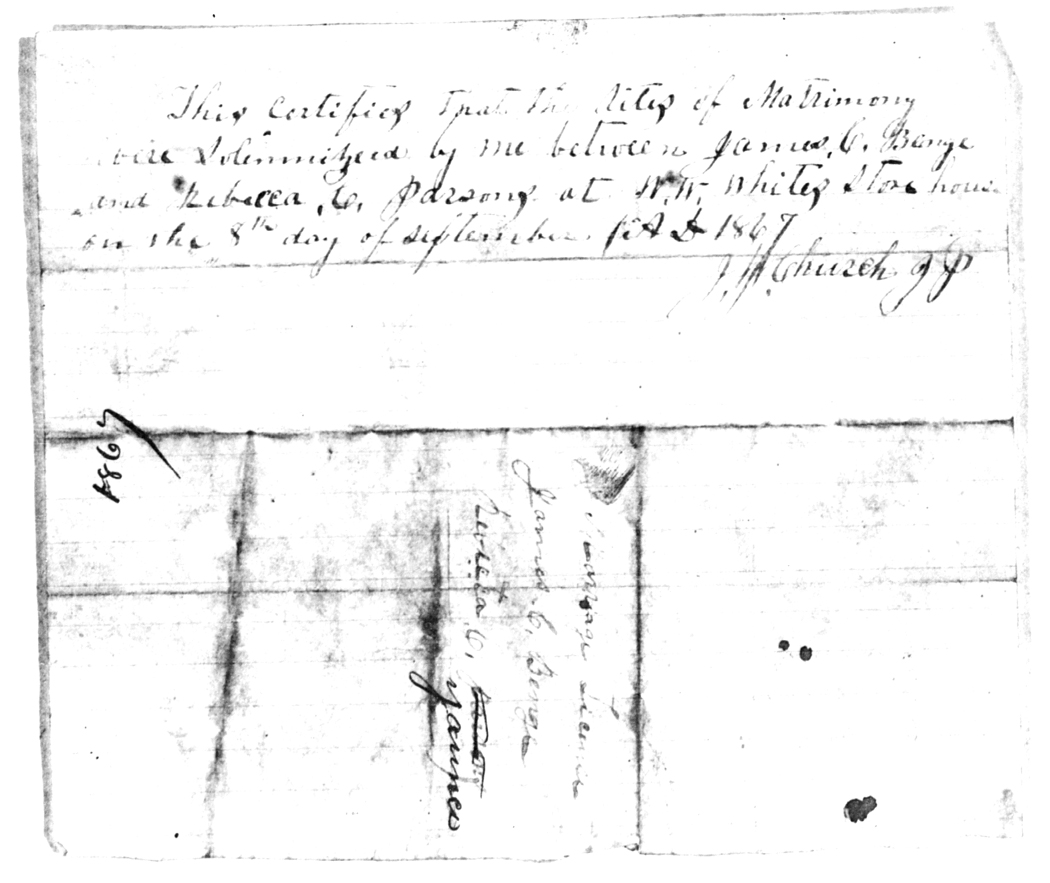 This Certifies that the Rites of Matrimony
were Solemnized by me between James C. Benge
and Rebecca C. Parsons at W. W. Whites Store house
on the 8th day of September AD 1867
J. W. Church J P
1867
Marriage License
James C. Benge
Rebecca C.